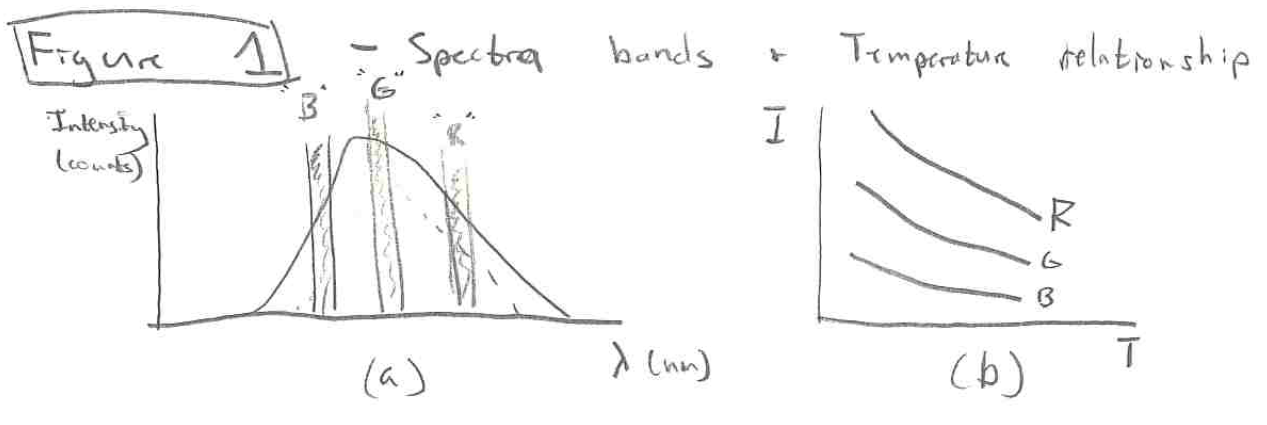 Figure 1 - Spectra bands + Temperature relationship
"B" "G" "R"
Intensity
(counts)
λ (nm)
(a)
I
R
G
B
T
(b)